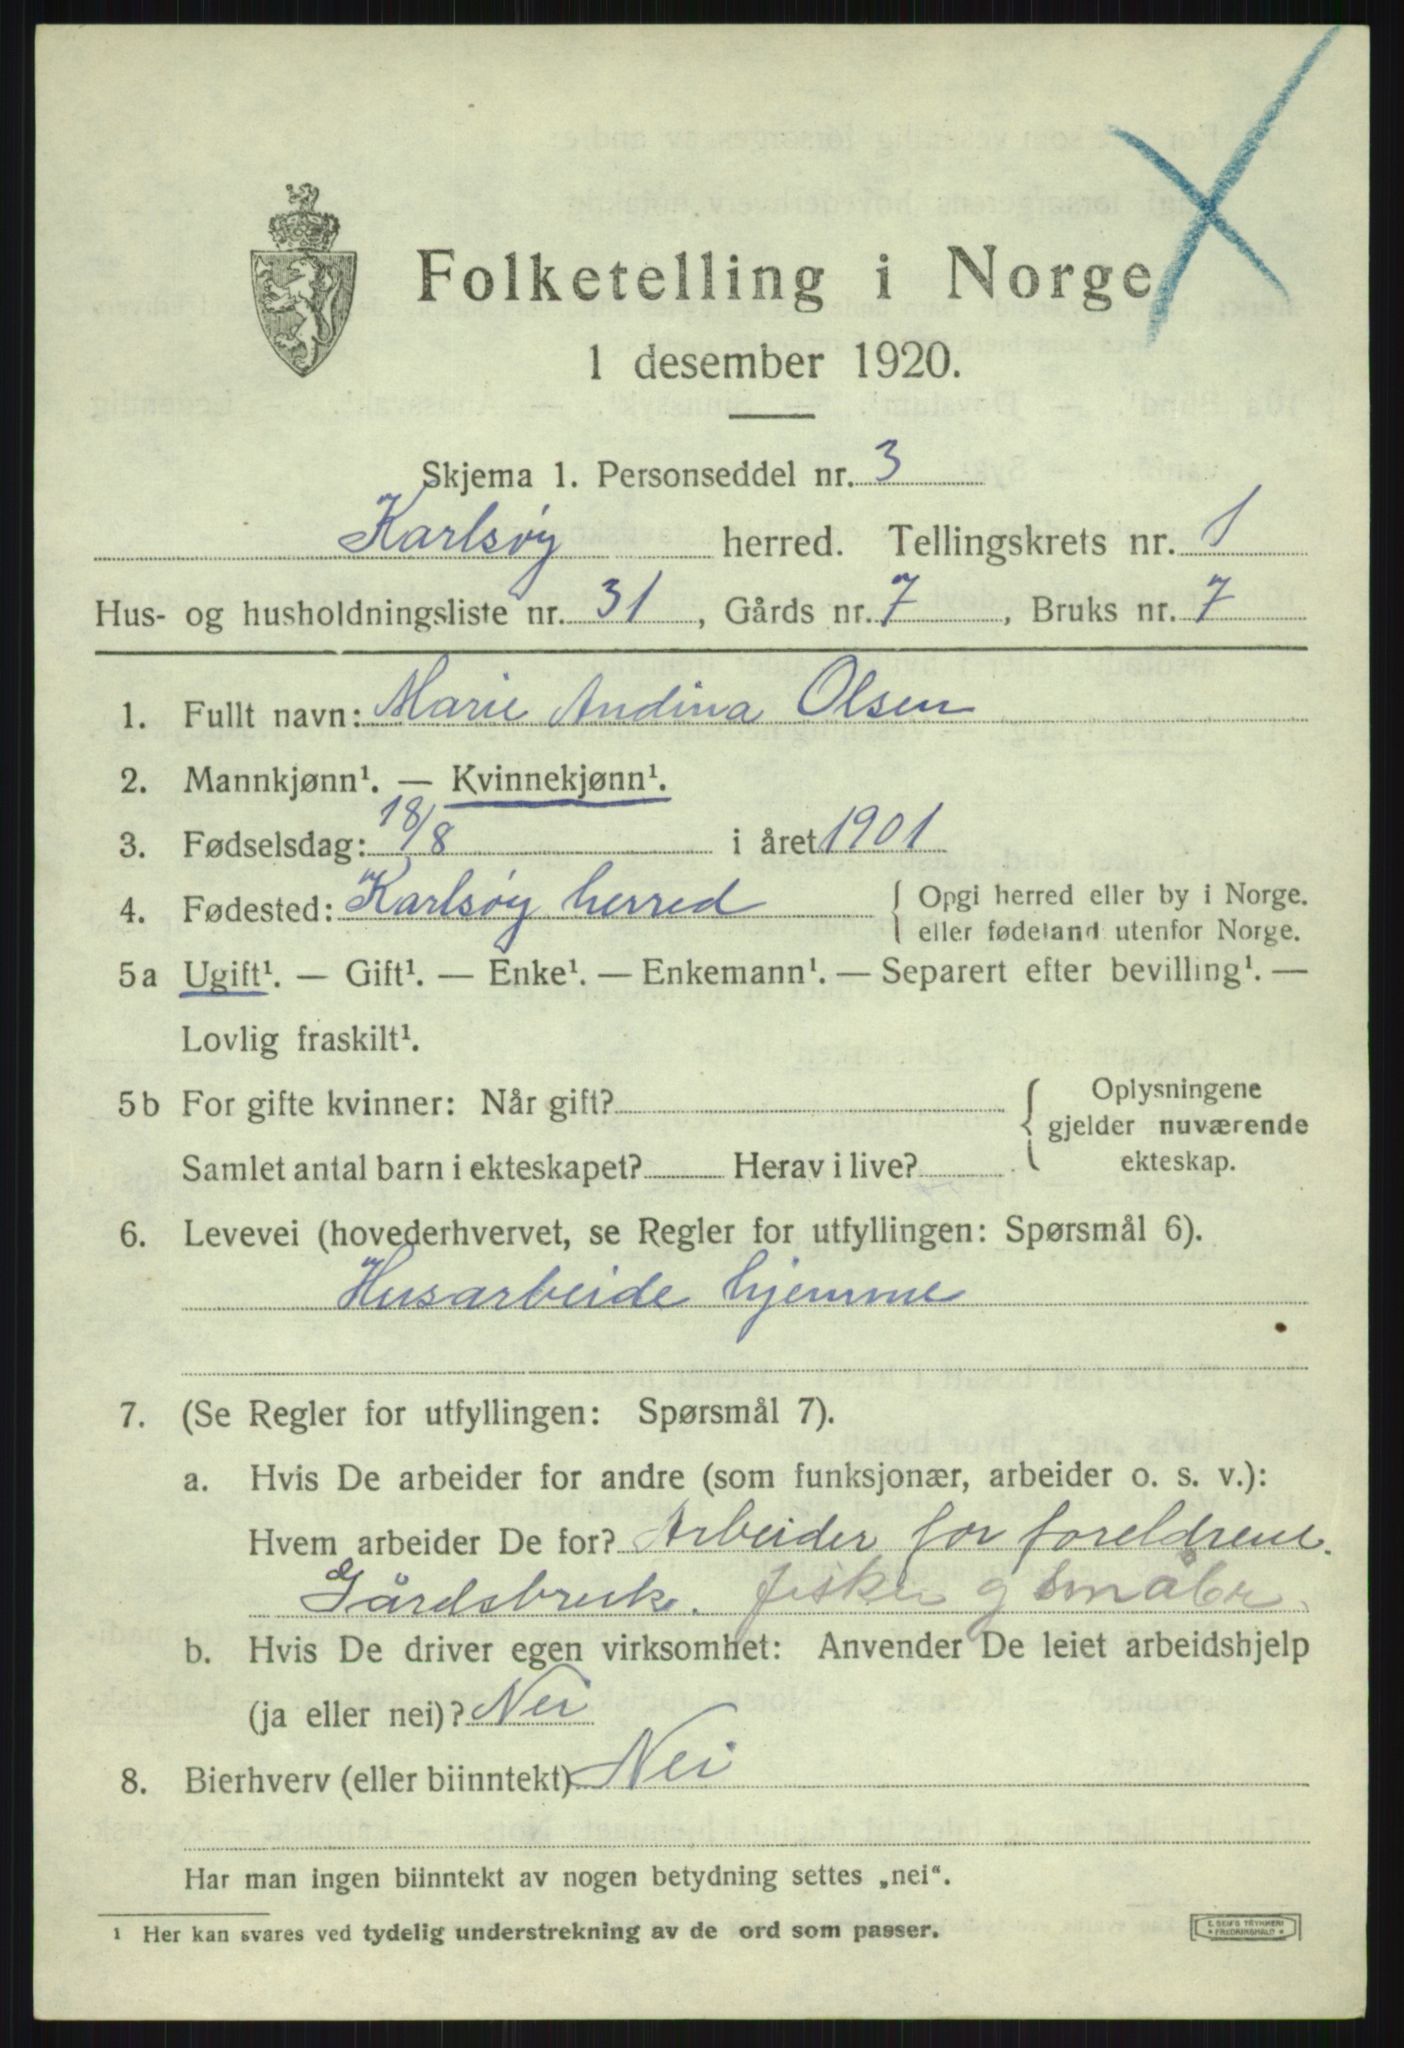 Folketelling i Norge
1 desember 1920.
Skjema 1. Personseddel nr. 3
Karlsøy herred. Tellingskrets nr. 1
Hus- og husholdningsliste nr. 31, Gårds nr. 7, Bruks nr. 7
1. Fullt navn: Marie Andina Olsen
2. Mannkjønn¹. — Kvinnekjønn¹.
3. Fødselsdag: 18/8 i året 1901
4. Fødested: Karlsøy herred { Opgi herred eller by i Norge.
eller fødeland utenfor Norge.
5a Ugift¹. — Gift¹. — Enke¹. — Enkemann¹. — Separert efter bevilling¹. —
Lovlig fraskilt¹.
5b For gifte kvinner: Når gift? { Oplysningene
gjelder nuværende
ekteskap.
Samlet antal barn i ekteskapet? Herav i live?
6. Levevei (hovederhvervet, se Regler for utfyllingen: Spørsmål 6).
Husarbeide hjemme
7. (Se Regler for utfyllingen: Spørsmål 7).
a. Hvis De arbeider for andre (som funksjonær, arbeider o. s. v.):
Hvem arbeider De for? Arbeider for foreldrene.
Gårdsbruk. fisker og småbr.
b. Hvis De driver egen virksomhet: Anvender De leiet arbeidshjelp
(ja eller nei)? Nei
8. Bierhverv (eller biinntekt) Nei
Har man ingen biinntekt av nogen betydning settes „nei“.
¹ Her kan svares ved tydelig understrekning av de ord som passer.
E. SEIFS TRYKKERI
* FREDRIKSHALD *